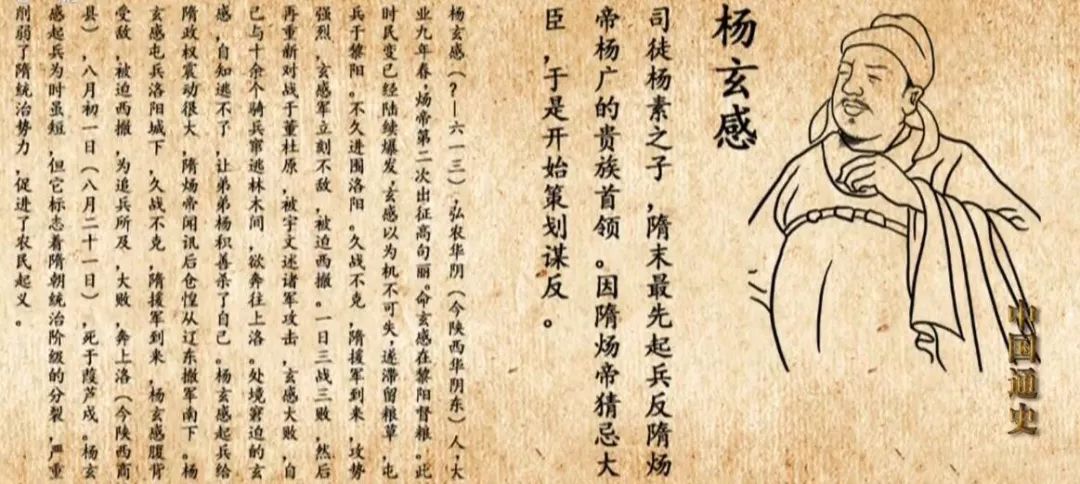 杨玄感
司徒杨素之子，隋末最先起兵反隋炀
帝杨广的贵族首领。因隋炀帝猜忌大
臣，于是开始策划谋反。
杨玄感（？—六一三），弘农华阴（今陕西华阴东）人，大
业九年春，炀帝第二次出征高句丽。命玄感在黎阳督粮。此
时民变已经陆续爆发，玄感以为机不可失，遂滞留粮草，屯
兵于黎阳。不久进围洛阳。久战不克，隋援军到来，攻势
强烈，玄感军立刻不敌，被迫西撤。一日三战三败，然后
再重新对战于董杜原，被宇文述诸军攻击，玄感大败，自
己与十余个骑兵窜逃林木间，欲奔往上洛。处境窘迫的玄
感，自知逃不了，让弟弟杨积善杀了自己。杨玄感起兵给
隋政权震动很大，隋炀帝闻讯后仓惶从辽东撤军南下。杨
玄感屯兵洛阳城下，久战不克，隋援军到来，杨玄感腹背
受敌，被迫西撤，为追兵所及，大败，奔上洛（今陕西商
县），八月初一日（八月二十一日），死于葭芦戍。杨玄
感起兵为时虽短，但它标志着隋朝统治阶级的分裂，严重
削弱了隋统治势力，促进了农民起义。
中国通史